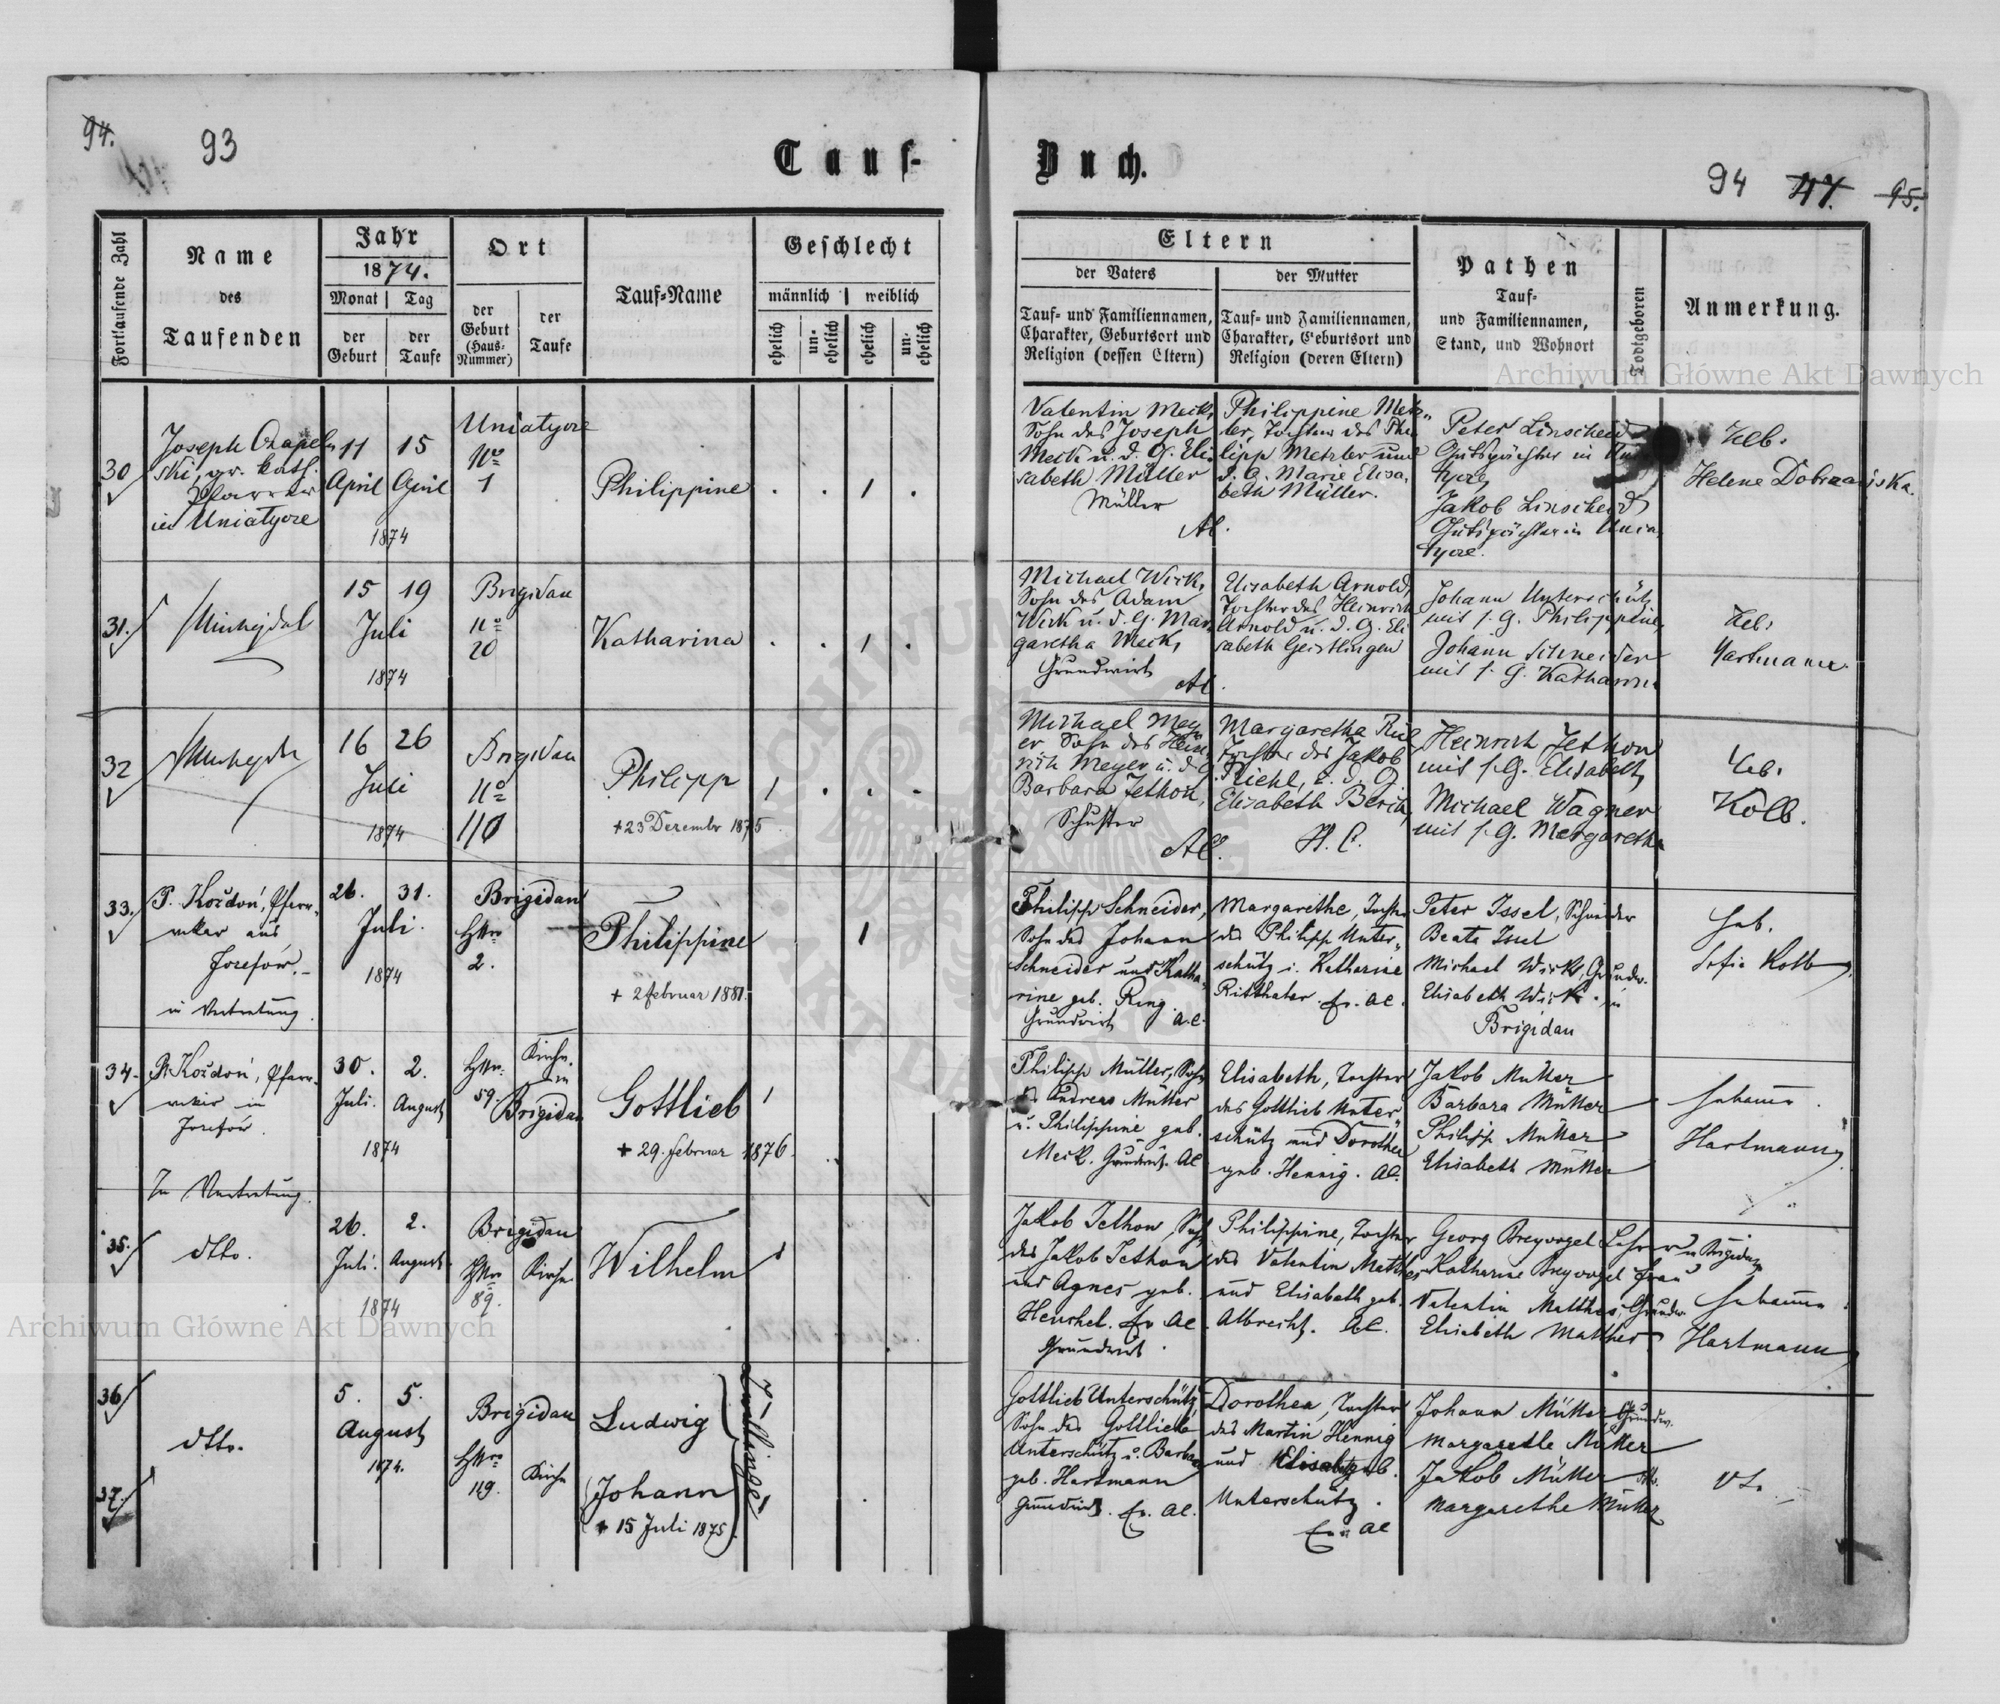 94.
93
Tauf-
Buch.
94 47. 95.
Fortlaufende Zahl
Name
des
Taufenden
Jahr
1874.
Monat Tag
der Geburt
der Taufe
Ort
der
Geburt
(Haus-
Nummer)
der
Taufe
Tauf-Name
Geschlecht
männlich weiblich
ehelich
un-
ehelich
ehelich
un-
ehelich
Eltern
der Vaters
der Mutter
Tauf- und Familiennamen,
Charakter, Geburtsort und
Religion (dessen Eltern)
Tauf- und Familiennamen,
Charakter, Geburtsort und
Religion (deren Eltern)
Pathen
Tauf-
und Familiennamen,
Stand, und Wohnort
Todtgeboren
Anmerkung.
Archiwum Główne Akt Dawnych
30
Joseph
gr. kath.
Pfarrer
in Uniatycze
11 15
April April
1874
Uniatycze
No
1
Philippine
1
Valentin Meck,
Sohn des Joseph
Meck u. d. G. Eli-
sabeth Müller
Müller
AC.
Philippine Metz-
ler, Tochter des Phi-
lipp Metzler und
d. G. Marie Elisa-
beth Müller.
Peter Linscheid
Gutspächter in
Jakob Linscheid
Gutspächter in Unia-
tycze.
Heb.
Helene
31.
15 19
Juli
1874
Brigidau
No
20
Katharina
1
Michael Wirk,
Sohn des Adam
Wirk u. d. G. Mar-
garetha Meck,
Grundwirt
AC.
Elisabeth Arnold,
Tochter des Heinrich
Arnold u. d. G. Eli-
sabeth
Johann Unterschütz
mit s. G. Philippine,
Johann Schneider
mit s. G. Katharina
Heb.
Hartmann.
32
16 26
Juli
1874
Brigidau
No
110
Philipp
+23 Dezember 1875
1
Michael Mey-
er, Sohn des Hein-
rich Meyer u. d. G.
Barbara Jethon,
Schuster
AC.
Margaretha
Tochter des Jakob
Riehl, u. d. G.
Elisabeth
H. C.
Heinrich Jethon
mit s. G. Elisabeth,
Michael Wagner
mit s. G. Margaretha
Heb.
Kolb.
33.
P. Koždoń, Pfarr-
vikar aus
Josefów.
in Vertretung.
26. 31.
Juli.
1874
Brigidau
HNro
2.
Philippine
+ 2 februar 1881.
1
Philipp Schneider,
Sohn des Johann
Schneider und Katha-
rine geb. Ring.
Grundwirt A.C.
Margarethe, Tochter
des Philipp Unter-
schütz u. Katharine
Ritthaler. Ev. AC.
Peter Issel, Schneider
Beate Issel
Michael Wirk, Grundw.
Elisabeth Wirk. in
Brigidau
Heb.
Sofie Kolb.
34.
P. Koždoń, Pfarr-
vikar in
Josefów.
In Vertretung.
30. 2.
Juli. August
1874
HNr.
59.
Kirche
in
Brigidau
Gottlieb
+ 29. februar 1876.
1
Philipp Müller, Sohn
des Andreas Müller
u. Philippine geb.
Meck. Grundwirt. AC
Elisabeth, Tochter
des Gottlieb Unter-
schütz und Dorothea
geb. Hennig. AC.
Jakob Müller
Barbara Müller
Philipp Müller
Elisabeth Müller
Hebamme.
Hartmann.
35.
dtto.
26. 2.
Juli. August.
1874
Brigidau
HNro
89.
Kirche
Wilhelm
1
Jakob Jethon, Sohn
des Jakob Jethon
und Agnes geb.
Henchel. Ev AC.
Grundwirt.
Philippine, Tochter
des Valentin Matthes
und Elisabeth geb.
Albrecht. AC.
Georg Breyvogel Lehrer in Brigidau
Katharine Breyvogel Frau
Valentin Matthes, Grundw.
Elisabeth Matthes.
Hebamme.
Hartmann.
Archiwum Główne Akt Dawnych
36
37.
dtto.
5. 5.
August
1874.
Brigidau
HNro
149.
Kirche
Ludwig
Johann
+ 15 Juli 1875.
Zwillinge!
Gottlieb Unterschütz,
Sohn des Gottlieb
Unterschütz u. Barbara
geb. Hartmann
Grundwirt. Ev. AC.
Dorothea, Tochter
des Martin Hennig
und Elisabeth geb.
Unterschütz.
Ev. AC
Johann Müller Grundw.
Margarethe Müller
Jakob Müller dtto.
Margarethe Müller